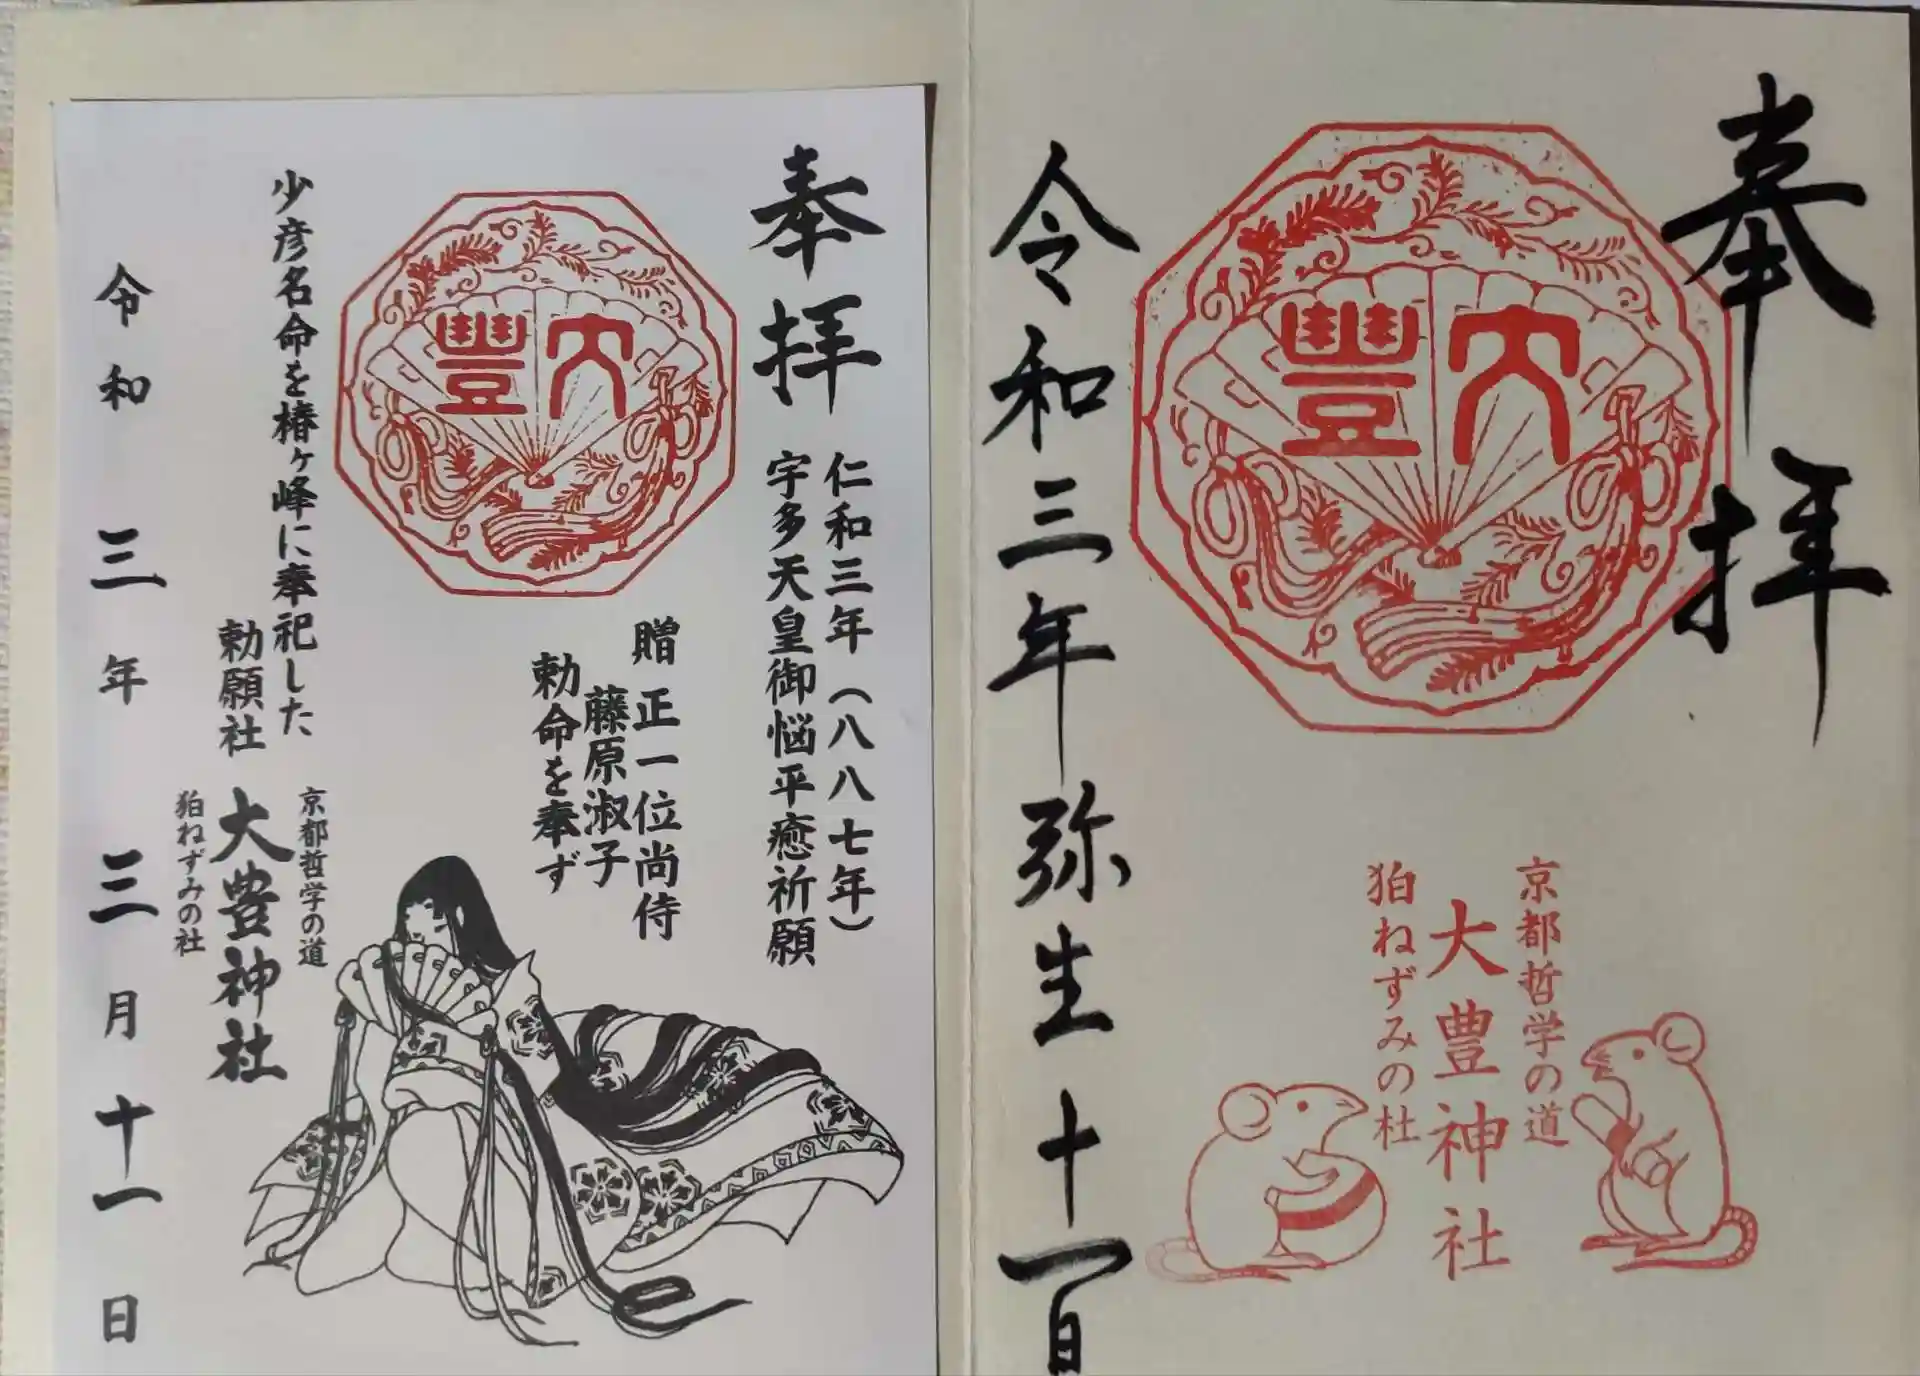 奉拝
大豊
京都哲学の道
大豊神社
狛ねずみの社
令和三年弥生十一日
奉拝
仁和三年（八八七年）
宇多天皇御悩平癒祈願
大豐
贈 正一位尚侍
藤原淑子
勅命を奉ず
少彦名命を椿ヶ峰に奉祀した
勅願社 大豊神社
京都哲学の道
狛ねずみの社
令和三年三月十一日